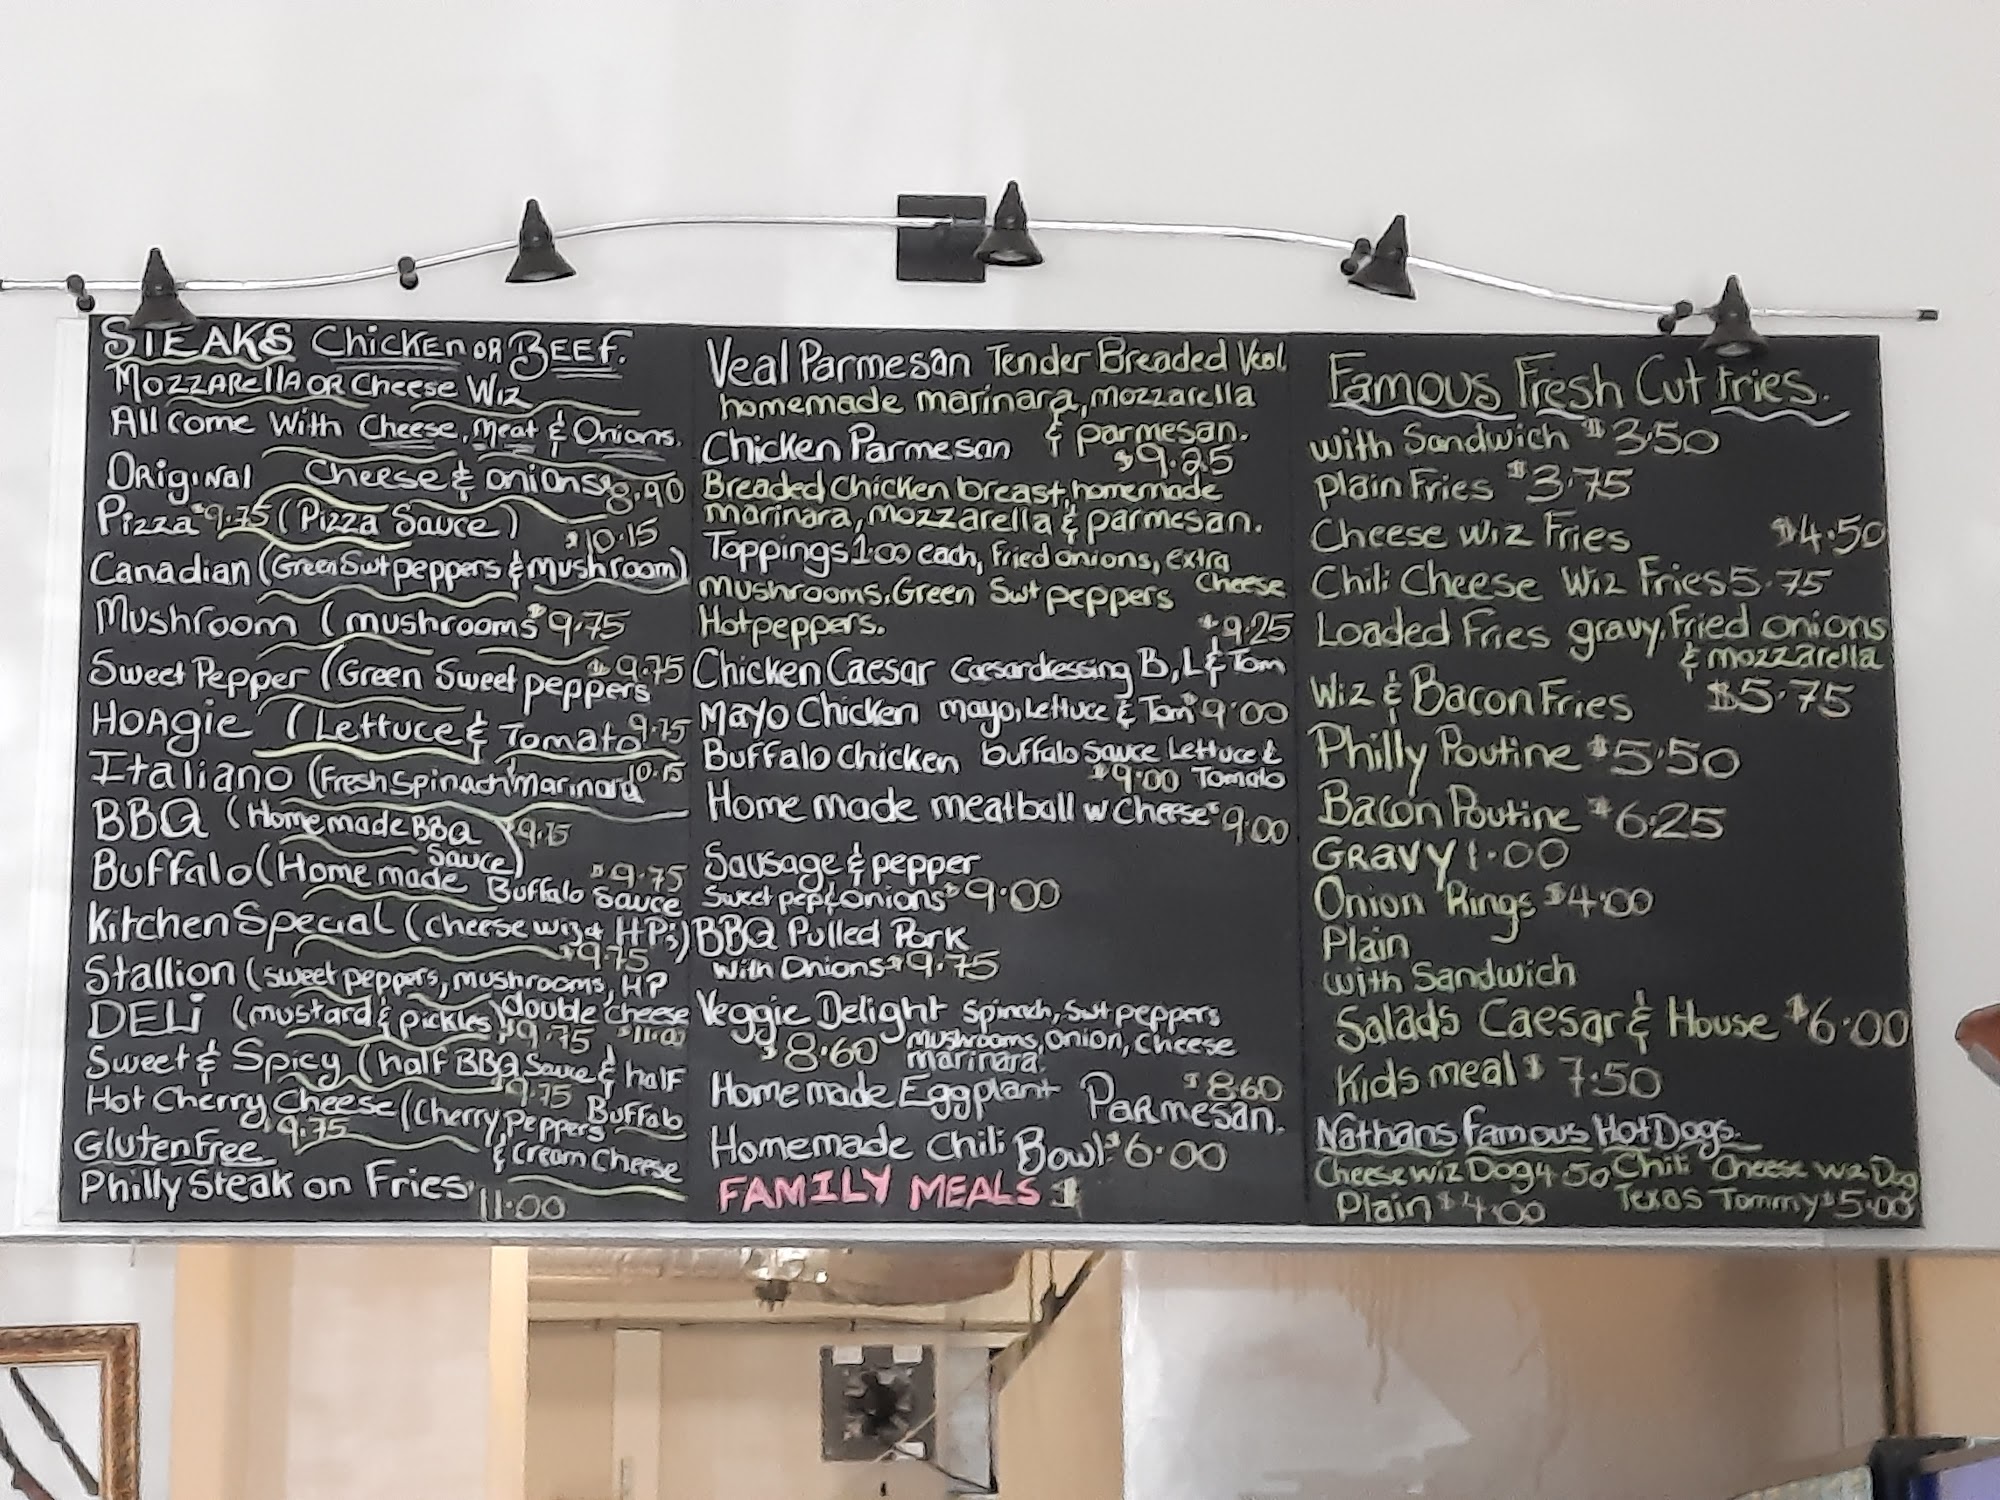 STEAKS Chicken OR BEEF.
Mozzarella OR Cheese Wiz
All Come With Cheese, Meat & Onions.
Original Cheese & onions $8.90
Pizza $9.75 (Pizza Sauce)
$10.15
Canadian (Green Swt peppers & mushroom)
Mushroom (mushrooms $9.75
Sweet Pepper (Green Sweet peppers $9.75
Hoagie (Lettuce & Tomato 9.75
Italiano (Fresh Spinach Marinara 10.15
BBQ (Homemade BBQ Sauce) $9.75
Buffalo (Home made Buffalo Sauce $9.75
Kitchen Special (cheese wiz & HP's)
$9.75
Stallion (sweet peppers, mushrooms, HP
double cheese $11.00
DELi (mustard & pickles) $9.75
Sweet & Spicy (half BBQ Sauce & half Buffalo
9.75
Hot Cherry Cheese (Cherry peppers & Cream Cheese
$9.75
Gluten Free
Philly Steak on Fries
11.00
Veal Parmesan Tender Breaded Veal
homemade marinara, mozzarella
& parmesan.
Chicken Parmesan $9.25
Breaded chicken breast, homemade
marinara, mozzarella & parmesan.
Toppings 1.00 each, Fried onions, extra Cheese
Mushrooms, Green Swt peppers
Hot peppers.
$9.25
Chicken Caesar Caesar dressing B, L & Tom
Mayo Chicken mayo, Lettuce & Tom $9.00
Buffalo Chicken buffalo sauce Lettuce & Tomato
$9.00
Home made meatball w Cheese $9.00
Sausage & pepper
Sweet pep & onions $9.00
BBQ Pulled Pork
with Onions $9.75
Veggie Delight Spinach, Swt peppers
$8.60 mushrooms, onion, cheese
marinara.
Home made Eggplant Parmesan. $8.60
Homemade Chili Bowl $6.00
FAMILY MEALS $
Famous Fresh Cut Fries.
with Sandwich $3.50
plain Fries $3.75
Cheese Wiz Fries $4.50
Chili Cheese Wiz Fries 5.75
Loaded Fries gravy, Fried onions
& mozzarella
Wiz & Bacon Fries $5.75
Philly Poutine $5.50
Bacon Poutine $6.25
GRAVY 1.00
Onion Rings $4.00
Plain
with Sandwich
Salads Caesar & House $6.00
Kids meal $7.50
Nathans Famous Hot Dogs.
Cheese wiz Dog 4.50 Chili Cheese Wiz Dog
Plain $4.00 Texas Tommy $5.00